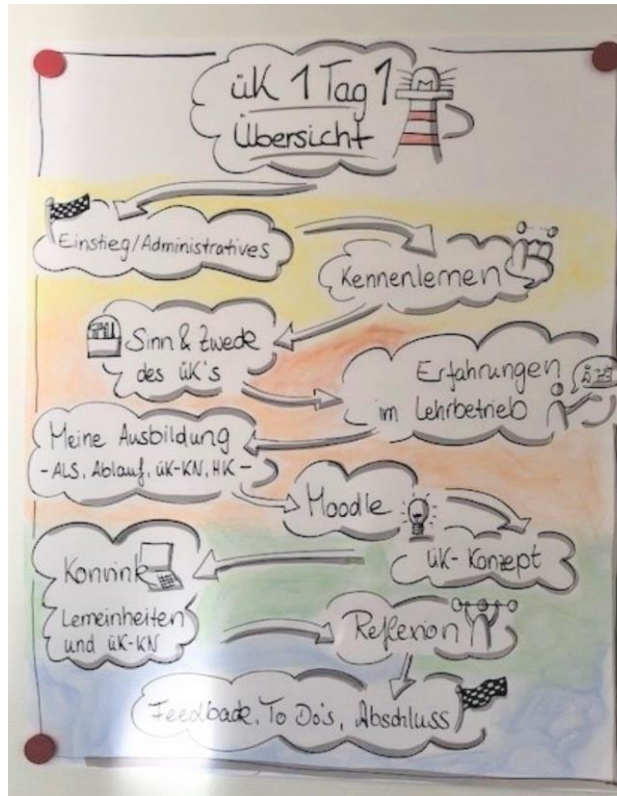 üK 1 Tag 1
Übersicht
Einstieg/Administratives
Kennenlernen
Sinn & Zweck
des üK's
Erfahrungen
im Lehrbetrieb
Meine Ausbildung
- ALS, Ablauf, üK-KN, HK -
Moodle
üK-Konzept
Konvink
Lerneinheiten
und üK-KN
Reflexion
Feedback, To Do's, Abschluss